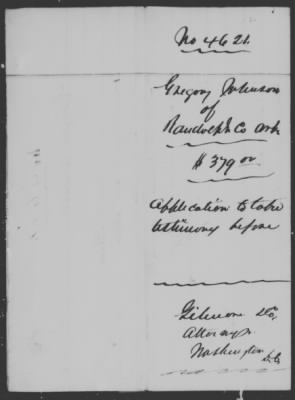 No 4621.
Gregory Johnson
of
Randolph Co Ark
$379 00
Application to take
testimony before
Gilmore & Co,
Attorneys.
Washington D.C.